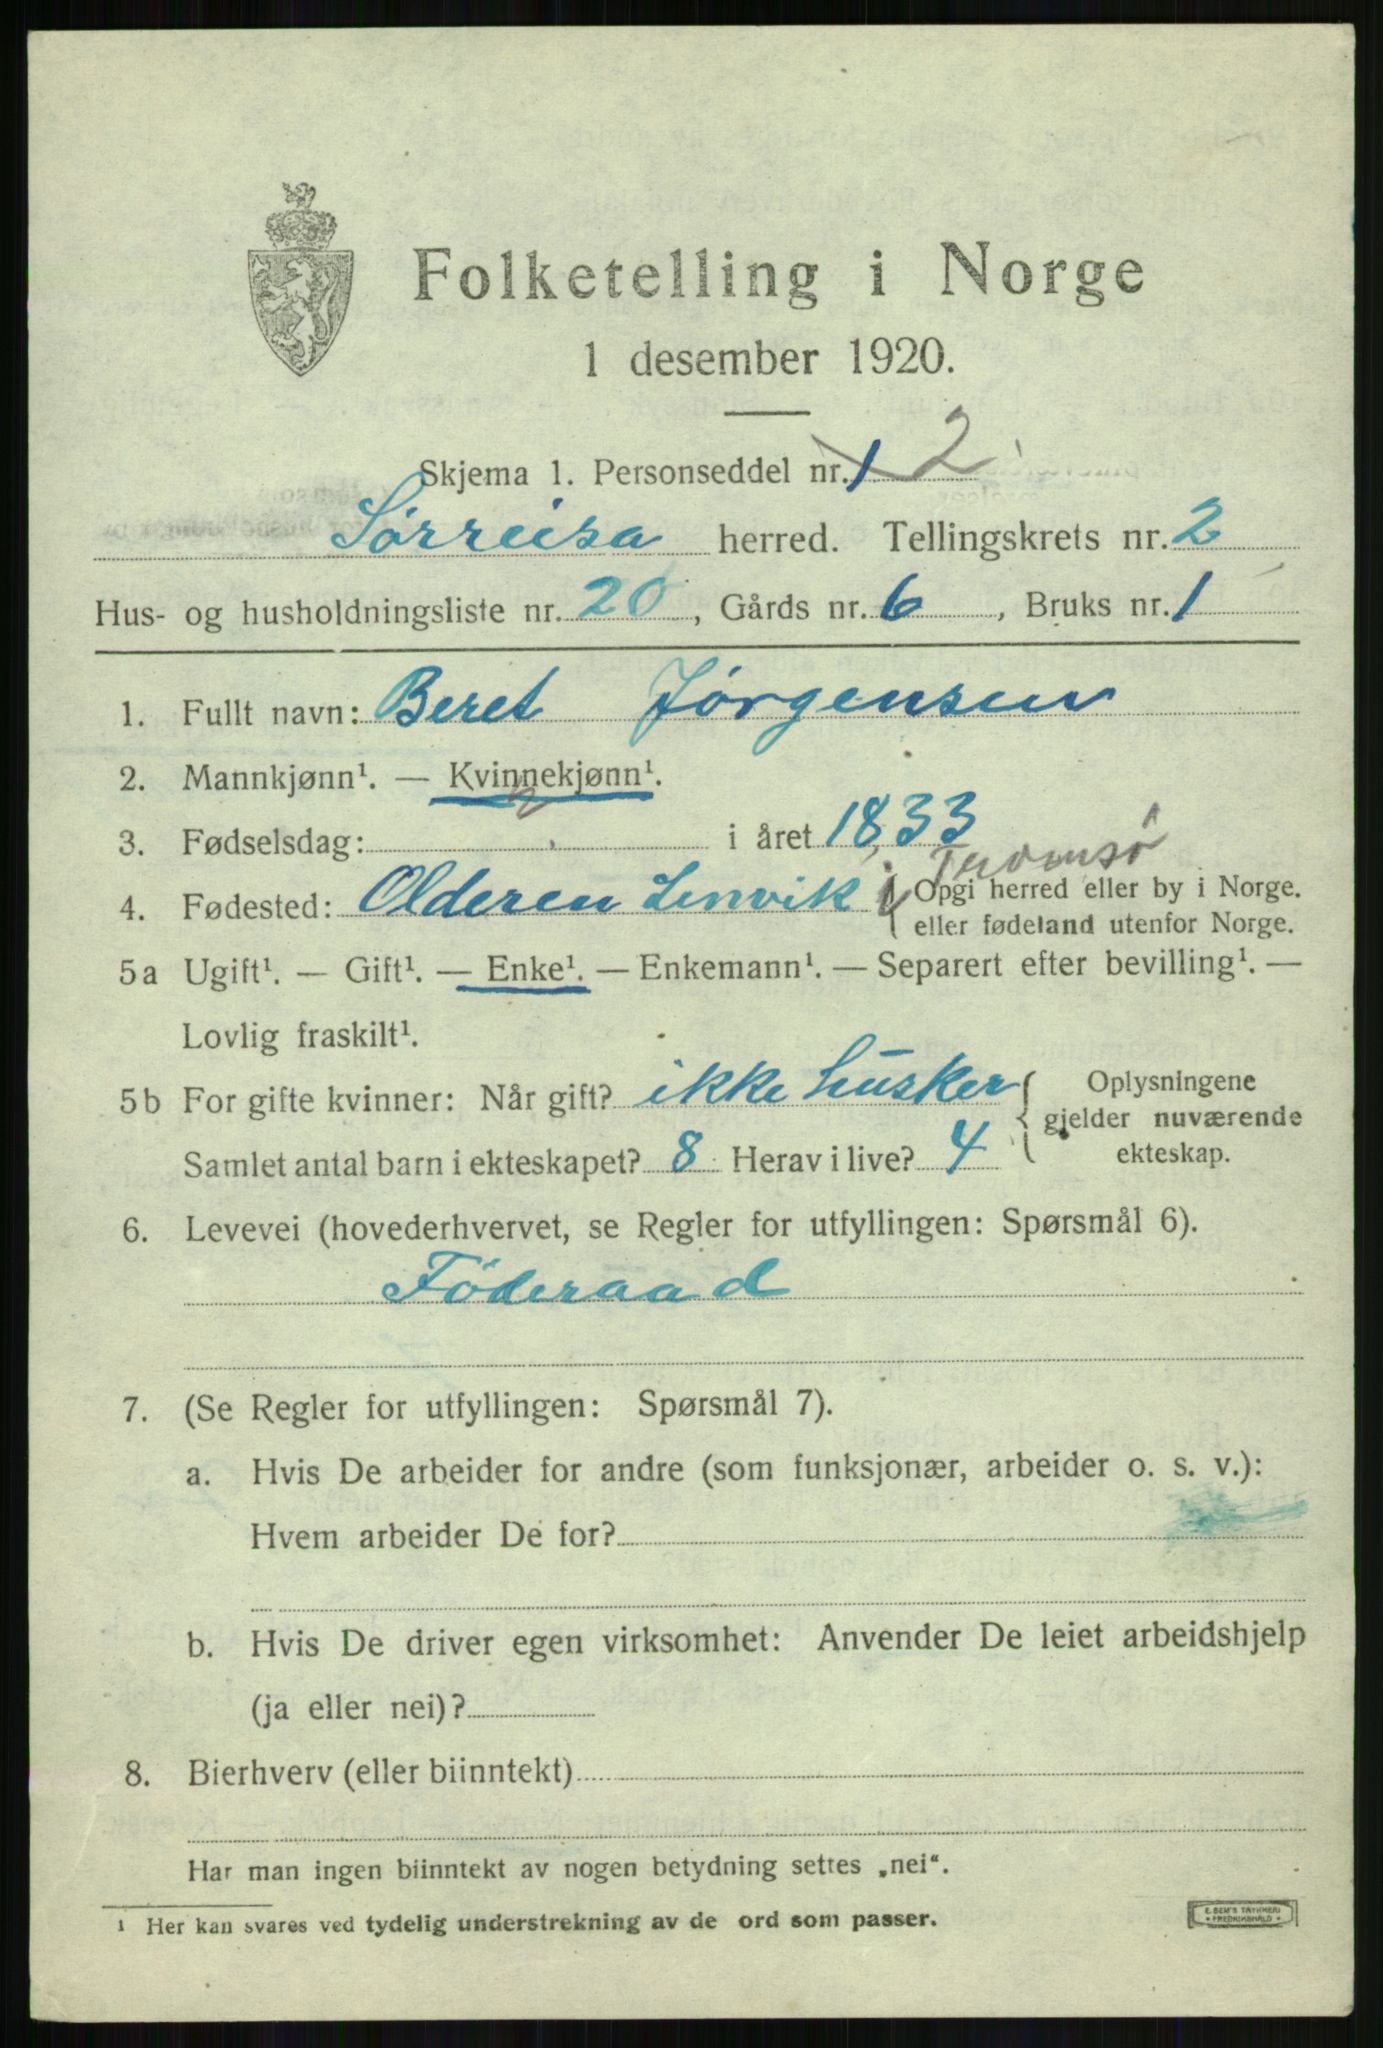 Folketelling i Norge
1 desember 1920.
Skjema 1. Personseddel nr. 1 2
Sørreisa herred. Tellingskrets nr. 2
Hus- og husholdningsliste nr. 20, Gårds nr. 6, Bruks nr. 1
1. Fullt navn: Beret Jørgensen
2. Mannkjønn¹. — Kvinnekjønn¹.
3. Fødselsdag: i året 1833
Tromsø
4. Fødested: Olderen Lenvik { Opgi herred eller by i Norge.
eller fødeland utenfor Norge.
5a Ugift¹. — Gift¹. — Enke¹. — Enkemann¹. — Separert efter bevilling¹. —
Lovlig fraskilt¹.
5b For gifte kvinner: Når gift? ikke husker { Oplysningene
gjelder nuværende
Samlet antal barn i ekteskapet? 8 Herav i live? 4 ekteskap.
6. Levevei (hovederhvervet, se Regler for utfyllingen: Spørsmål 6).
Föderaad
7. (Se Regler for utfyllingen: Spørsmål 7).
a. Hvis De arbeider for andre (som funksjonær, arbeider o. s. v.):
Hvem arbeider De for?
b. Hvis De driver egen virksomhet: Anvender De leiet arbeidshjelp
(ja eller nei)?
8. Bierhverv (eller biinntekt)
Har man ingen biinntekt av nogen betydning settes „nei“.
¹ Her kan svares ved tydelig understrekning av de ord som passer.